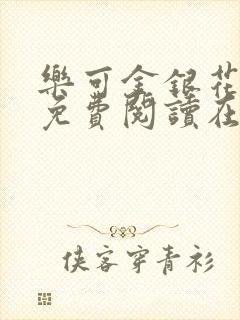 樂可金銀花
免費閱讀在
俠客穿青衫